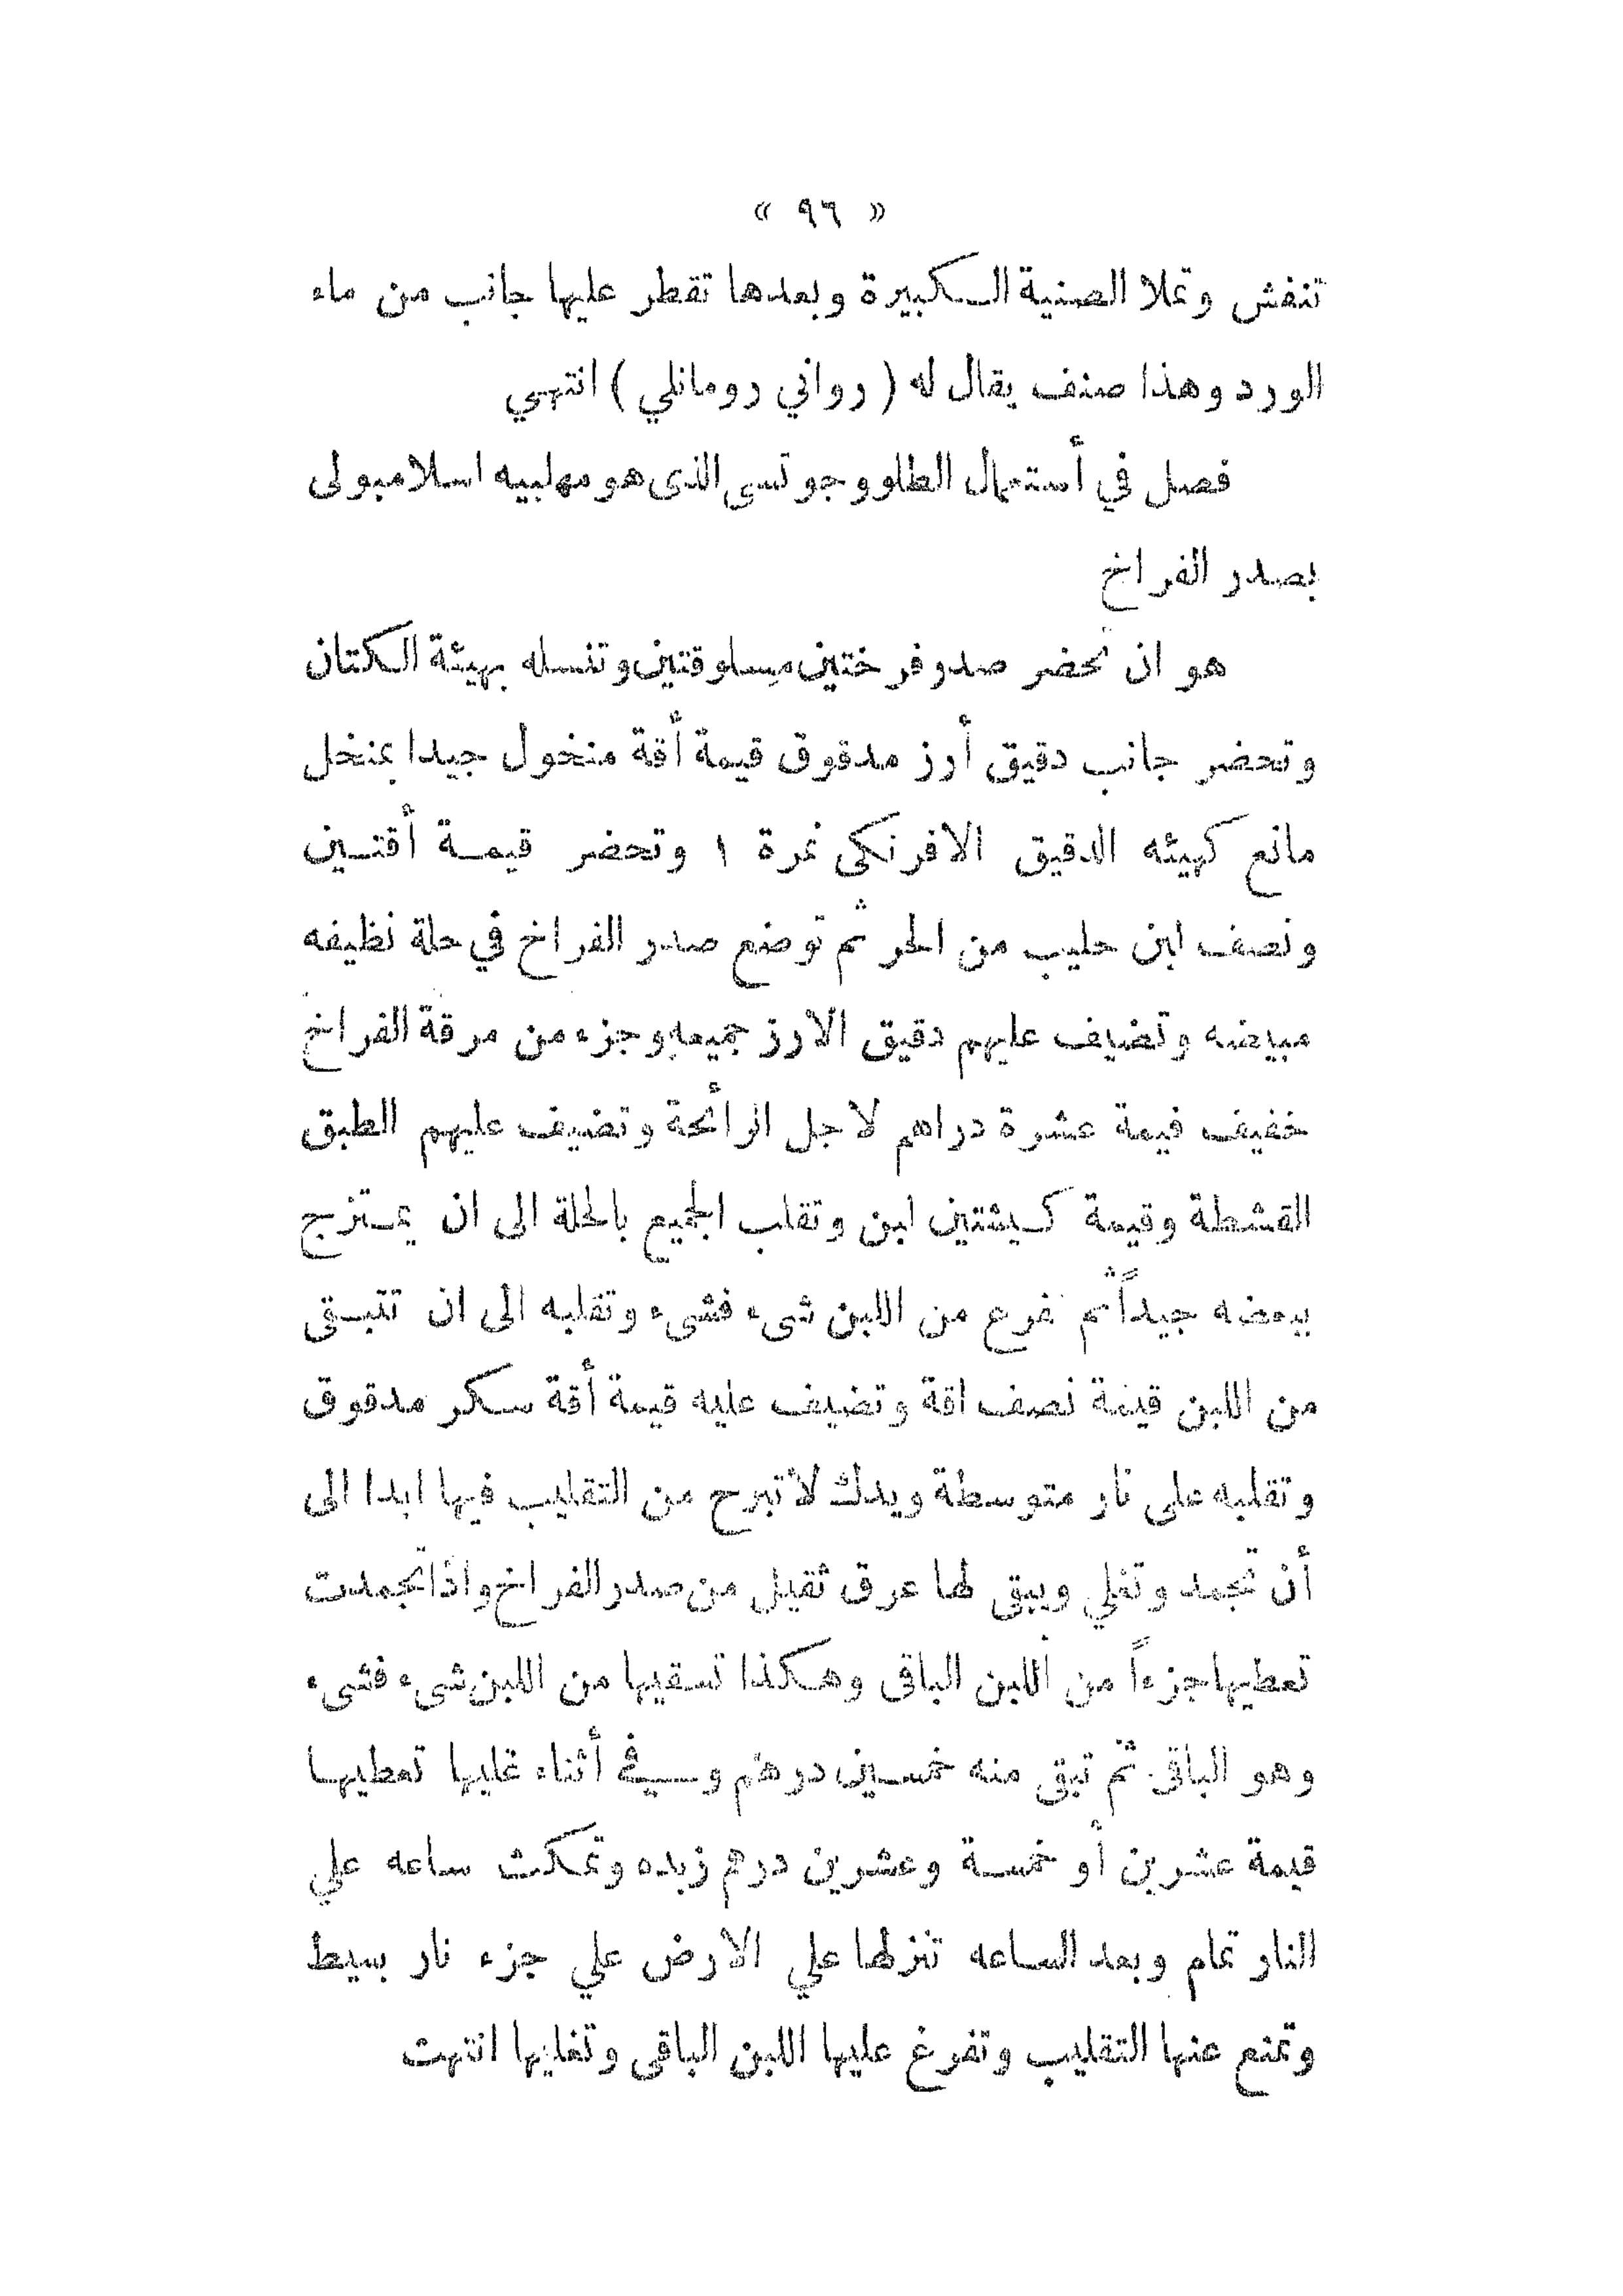 « ٩٦ »
تنفش وتملا الصنية الكبيرة وبعدها تقطر عليها جانب من ماء
الورد وهذا صنف يقال له ( رواني روماتلي ) انتهي
فصل في أستعمال الطلووجو تسي الذى هو مهلبيه اسلامبولى
بصدر الفراخ
هو ان تحضر صدو فرختين مسلوقتين وتنسله بهيئة الكتان
وتحضر جانب دقيق أرز مدقوق قيمة أقة منخول جيدا بمنخل
مانع كهيئه الدقيق الافرنكى نمرة ١ وتحضر قيمة أقتين
ونصف لبن حليب من الحر ثم توضع صدر الفراخ في حلة نظيفه
مبيضه وتضيف عليهم دقيق الارز جميعه وجزء من مرقة الفراخ
خفيف قيمة عشرة دراهم لاجل الرأئحة وتضيف عليهم الطبق
القشطة وقيمة كبشتين لبن وتقلب الجميع بالحلة الى ان يمتزج
ببعضه جيداً ثم تفرع من اللبن شىء فشىء وتقلبه الى ان تتبقى
من اللبن قيمة نصف اقة وتضيف عليه قيمة أقة سكر مدقوق
وتقلبه على نار متوسطة ويدك لا تبرح من التقليب فيها ابدا الى
أن تجمد وتغلي ويبقى لها عرق ثقيل من صدر الفراخ واذا تجمدت
تعطيها جزءاً من اللبن الباقى وهكذا تسقيها من اللبن شىء فشىء
وهو الباقى ثم تبقى منه خمسين درهم وفي أثناء غليها تعطيها
قيمة عشرين أو خمسة وعشرين درهم زبده وتمكث ساعه علي
النار تمام وبعد الساعه تنزلها علي الارض علي جزء نار بسيط
وتمنع عنها التقليب وتفرغ عليها اللبن الباقى وتغليها انتهت